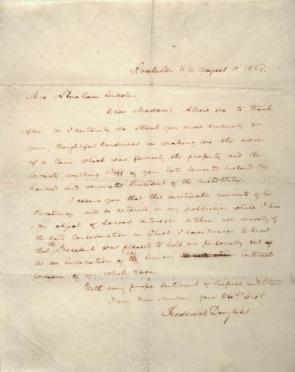 Rochester. N.Y. August 17. 1865.
Mrs Abraham Lincoln:
Dear Madam: Allow me to thank
you, as I certainly do thank you most sincerely for
your thoughtful kindness in making me the owner
of a Cane which was formerly the property and the
favorite walking Staff of your late lamented husband the
honored and venerated President of the United States.
I assure you that this inestimable memento of his
Excellency will be retained in my possession while I live
an object of sacred interest a token not merely of
the kind Consideration in which I have reason to know
that the President was pleased to hold me personally but as
as an indication of his humane interest
welfare of my whole race.
With every proper sentiment of Respect and Esteem
I am, Dear Madam, your Obt Servt
Frederick Douglass.